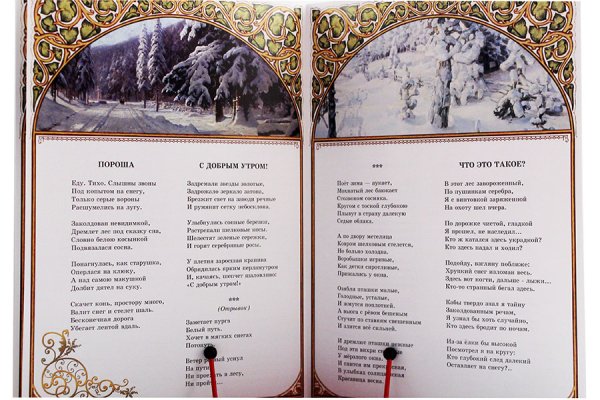 ПОРОША
Еду. Тихо. Слышны звоны
Под копытом на снегу,
Только серые вороны
Расшумелись на лугу.
Заколдован невидимкой,
Дремлет лес под сказку сна,
Словно белою косынкой
Подвязалася сосна.
Понагнулась, как старушка,
Оперлася на клюку,
А над самою макушкой
Долбит дятел на суку.
Скачет конь, простору много,
Валит снег и стелет шаль.
Бесконечная дорога
Убегает лентой вдаль.
С ДОБРЫМ УТРОМ!
Задремали звезды золотые,
Задрожало зеркало затона,
Брезжит свет на заводи речные
И румянит сетку небосклона.
Улыбнулись сонные березки,
Растрепали шелковые косы.
Шелестят зеленые сережки,
И горят серебряные росы.
У плетня заросшая крапива
Обрядилась ярким перламутром
И, качаясь, шепчет шаловливо:
«С добрым утром!»
***
(Отрывок)
Заметает пурга
Белый путь.
Хочет в мягких снегах
Потонуть.
Ветер резвый уснул
На пути;
Ни проехать в лесу,
Ни пройти...
***
Поет зима — аукает,
Мохнатый лес баюкает
Стозвоном сосняка.
Кругом с тоской глубокою
Плывут в страну далекую
Седые облака.
А по двору метелица
Ковром шелковым стелется,
Но больно холодна.
Воробышки игривые,
Как детки сиротливые,
Прижались у окна.
Озябли пташки малые,
Голодные, усталые,
И жмутся поплотней.
А вьюга с ревом бешеным
Стучит по ставням свешенным
И злится всё сильней.
И дремлют пташки нежные
Под эти вихри снежные
У мерзлого окна.
И снится им прекрасная,
В улыбках солнца ясная
Красавица весна.
ЧТО ЭТО ТАКОЕ?
В этот лес завороженный,
По пушинкам серебра,
Я с винтовкой заряженной
На охоту шел вчера.
По дорожке чистой, гладкой
Я прошел, не наследил...
Кто ж катался здесь украдкой?
Кто здесь падал и ходил?
Подойду, взгляну поближе:
Хрупкий снег изломан весь.
Здесь вот когти, дальше - лыжи...
Кто-то странный бегал здесь.
Кабы твердо знал я тайну
Заколдованным речам,
Я узнал бы хоть случайно,
Кто здесь бродит по ночам.
Из-за ёлки бы высокой
Посмотрел я на кругу:
Кто глубокий след далекий
Оставляет на снегу?..